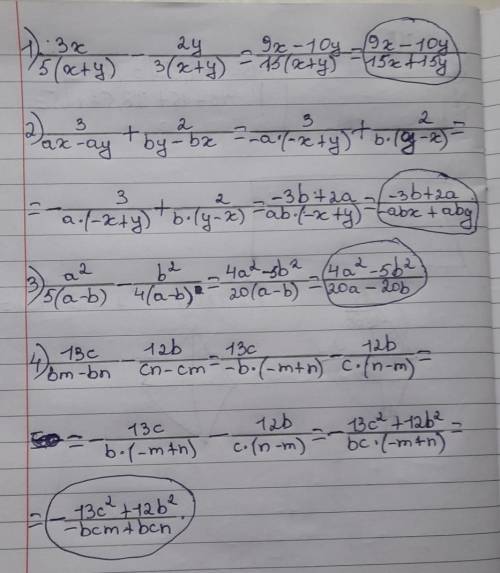 1) 3x/5(x+y) - 2y/3(x+y) = 9x-10y/15(x+y) = 9x-10y/15x+15y
2) 3/ax-ay + 2/by-bx = 3/-a·(-x+y) + 2/b·(y-x) =
= - 3/a·(-x+y) + 2/b·(y-x) = -3b+2a/ab·(-x+y) = -3b+2a/-abx+aby
3) a²/5(a-b) - b²/4(a-b) = 4a²-5b²/20(a-b) = 4a²-5b²/20a-20b
4) 13c/bm-bn - 12b/cn-cm = 13c/-b·(-m+n) - 12b/c·(n-m) =
= - 13c/b·(-m+n) - 12b/c·(n-m) = - 13c²+12b²/bc·(-m+n) =
= - 13c²+12b²/-bcm+bcn.